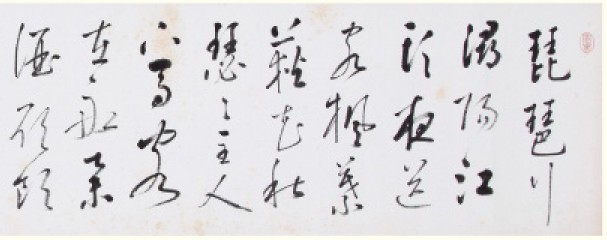 琵琶行
潯陽江
頭夜送
客楓葉
荻花秋
瑟々主人
下馬客
在船舉
酒欲飲